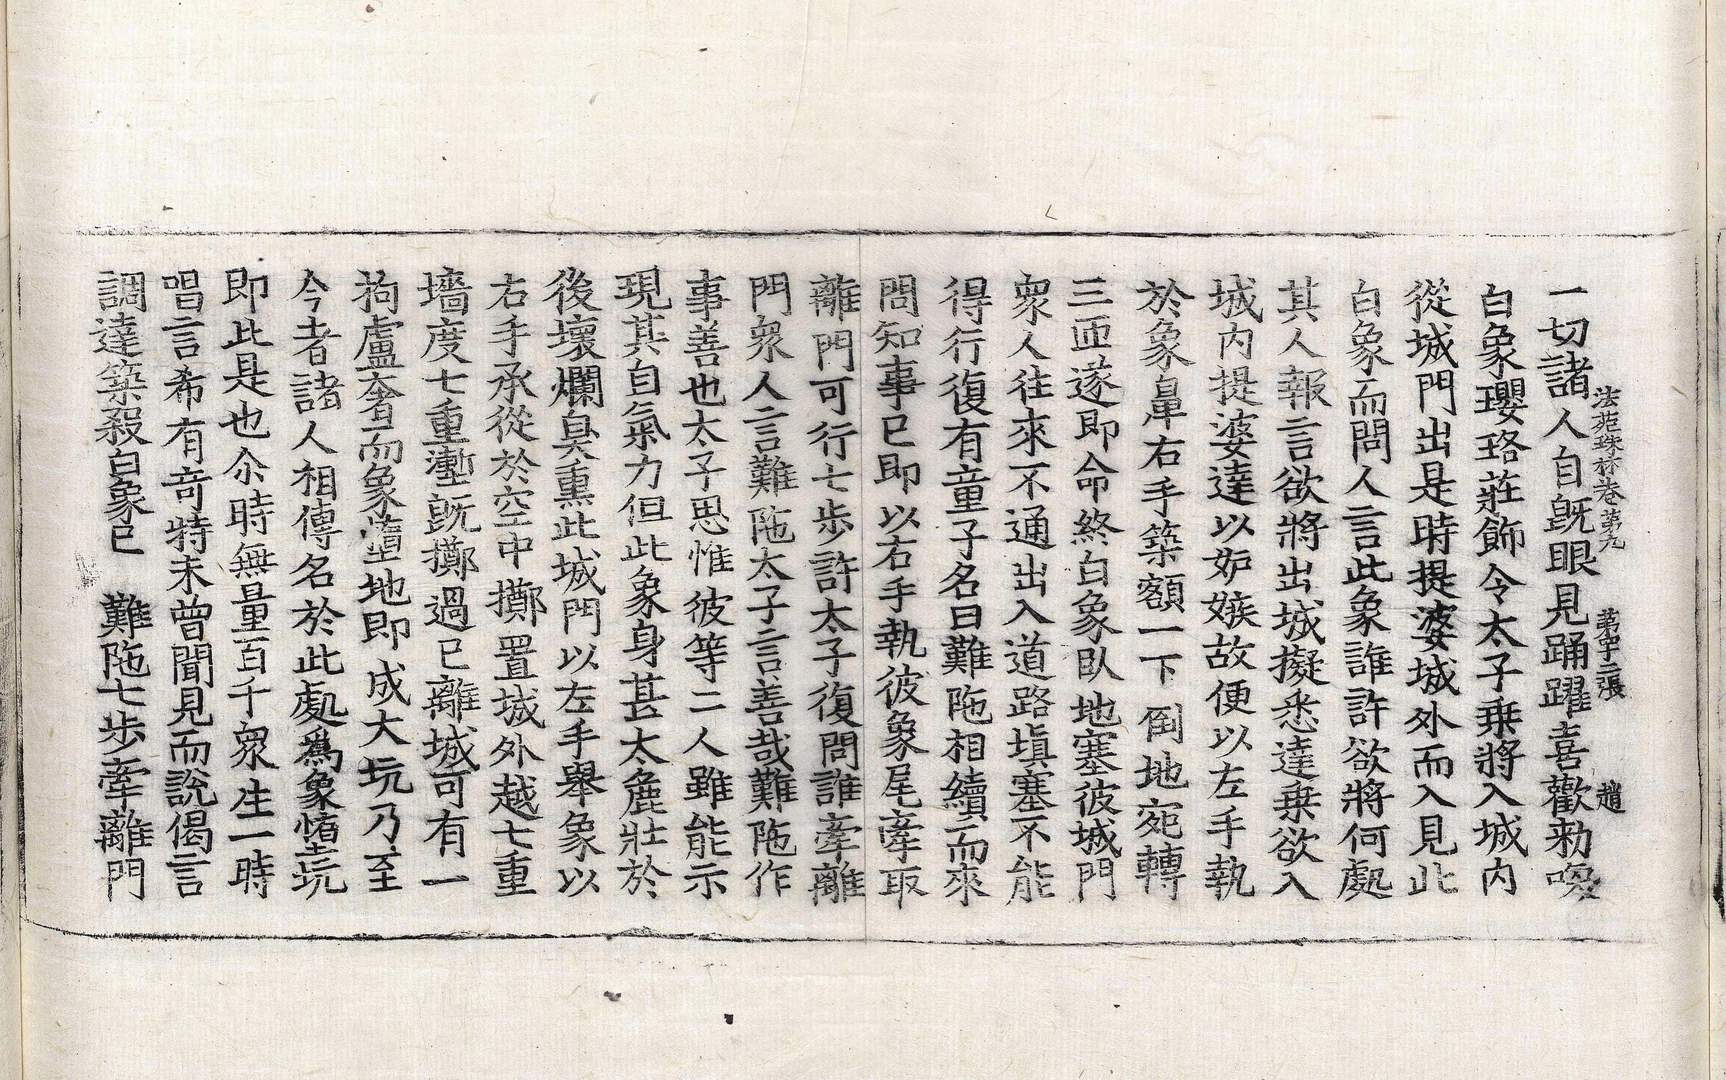 法苑珠林卷第九 第十二張 趙
一切諸人自旣眼見踊躍喜歡勑喚
白象瓔珞莊飾令太子乗將入城内
從城門出是時提婆城外而入見此
白象而問人言此象誰許欲將何處
其人報言欲將出城擬悉達乗欲入
城内提婆達以妬嫉故便以左手執
於象鼻右手築額一下倒地宛轉
三匝遂即命終白象臥地塞彼城門
衆人往來不通出入道路塡塞不能
得行復有童子名曰難陁相續而來
問知事已即以右手執彼象尾牽取
離門可行七步許太子復問誰牽離
門衆人言難陁太子言善哉難陁作
事善也太子思惟彼等二人雖能示
現其自氣力但此象身甚太麁壯於
後壞爛臭熏此城門以左手舉象以
右手承從於空中擲置城外越七重
墻度七重塹旣擲過已離城可有一
拘盧奢而象墮地即成大坑乃至
今者諸人相傳名於此處爲象墮坑
即此是也尒時無量百千衆生一時
唱言希有竒特未曾聞見而說偈言
調達築殺白象已 難陁七步牽離門